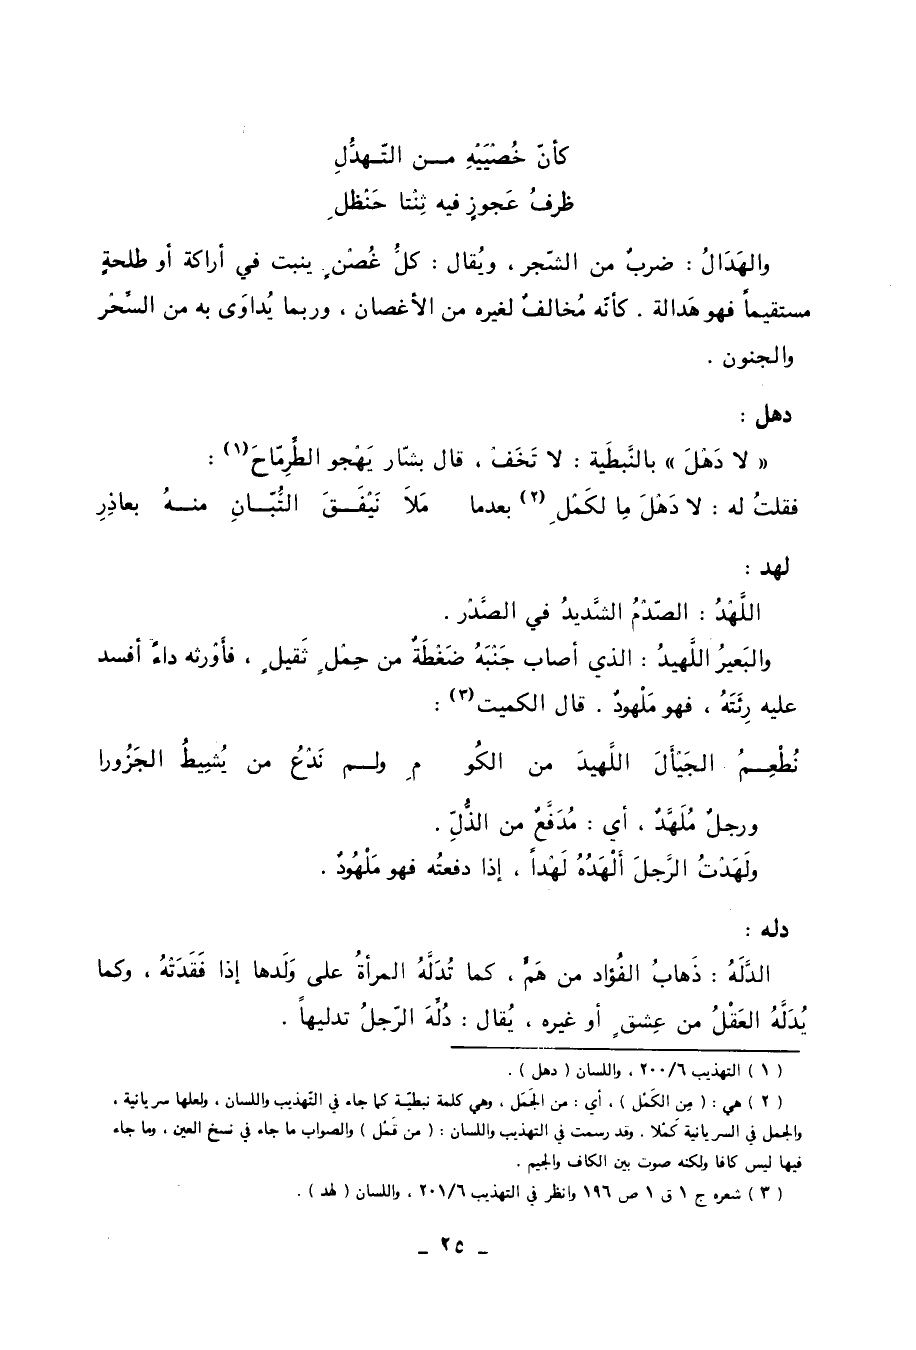 كأنّ خُصْيَيْهِ مـــن التّـهدُّلِ
ظرفُ عَجوزٍ فيه ثِنْتا حَنْظلِ
والهَدَالُ : ضربٌ من الشّجر ، ويُقال : كلُّ غُصْنٍ ينبت في أراكة أو طلحةٍ
مستقيماً فهو هَدالة . كأنّه مُخالفٌ لغيره من الأغصان ، وربما يُداوَى به من السِّحْر
والجنون .
دهل :
« لا دَهْلَ » بالنَّبطية : لا تَخَفْ ، قال بشّار يَهْجو الطِّرِمّاحَ(١) :
فقلتُ له : لا دَهْلَ مِا لكَمْلِ(٢) بعدما مَلاَ نَيْفَــقَ التُّبّــانِ منــهُ بعاذِرِ
لهد :
اللَّهْدُ : الصّدْمُ الشَّديدُ في الصَّدْر .
والبَعيرُ اللَّهيدُ : الذي أصاب جَنْبَهُ ضَغْطَةٌ من حِمْلٍ ثَقيلٍ ، فأَوْرثه داءً أفسد
عليه رِئَتَهُ ، فهو مَلْهودٌ . قال الكميت(٣) :
نُطْعِــمُ الجَيْأَلَ اللَّهيدَ من الكُو مِ ولــم نَدْعُ من يُشِيطُ الجَزُورا
ورجلٌ مُلَهَّدٌ ، أي : مُدَفَّعٌ من الذُّلِّ .
ولَهَدْتُ الرَّجلَ أَلْهَدُهُ لَهْداً ، إذا دفعتُه فهو مَلْهُودٌ .
دله :
الدَّلَهُ : ذَهابُ الفُؤاد من هَمٍّ ، كما تُدَلَّهُ المرأةُ على وَلَدها إذا فَقَدَتْهُ ، وكما
يُدَلَّهُ العَقْلُ من عِشقٍ أو غيره ، يُقال : دُلِّهَ الرّجلُ تدليهاً .
( ١ ) التهذيب ٢٠٠/٦ ، واللسان ( دهل ) .
( ٢ ) هي : ( مِن الكَمْل ) ، أي : من الجَمَل ، وهي كلمة نبطيّة كما جاء في التّهذيب واللسان ، ولعلها سريانية ،
والجمل في السريانية كَمْلا . وقد رسمت في التهذيب واللسان : ( من قَمْل ) والصواب ما جاء في نسخ العين ، وما جاء
فيها ليس كافا ولكنه صوت بين الكاف والجيم .
( ٣ ) شعره ج ١ ق ١ ص ١٩٦ وانظر في التهذيب ٢٠١/٦ ، واللسان ( لهد ) .
_ ٢٥ _